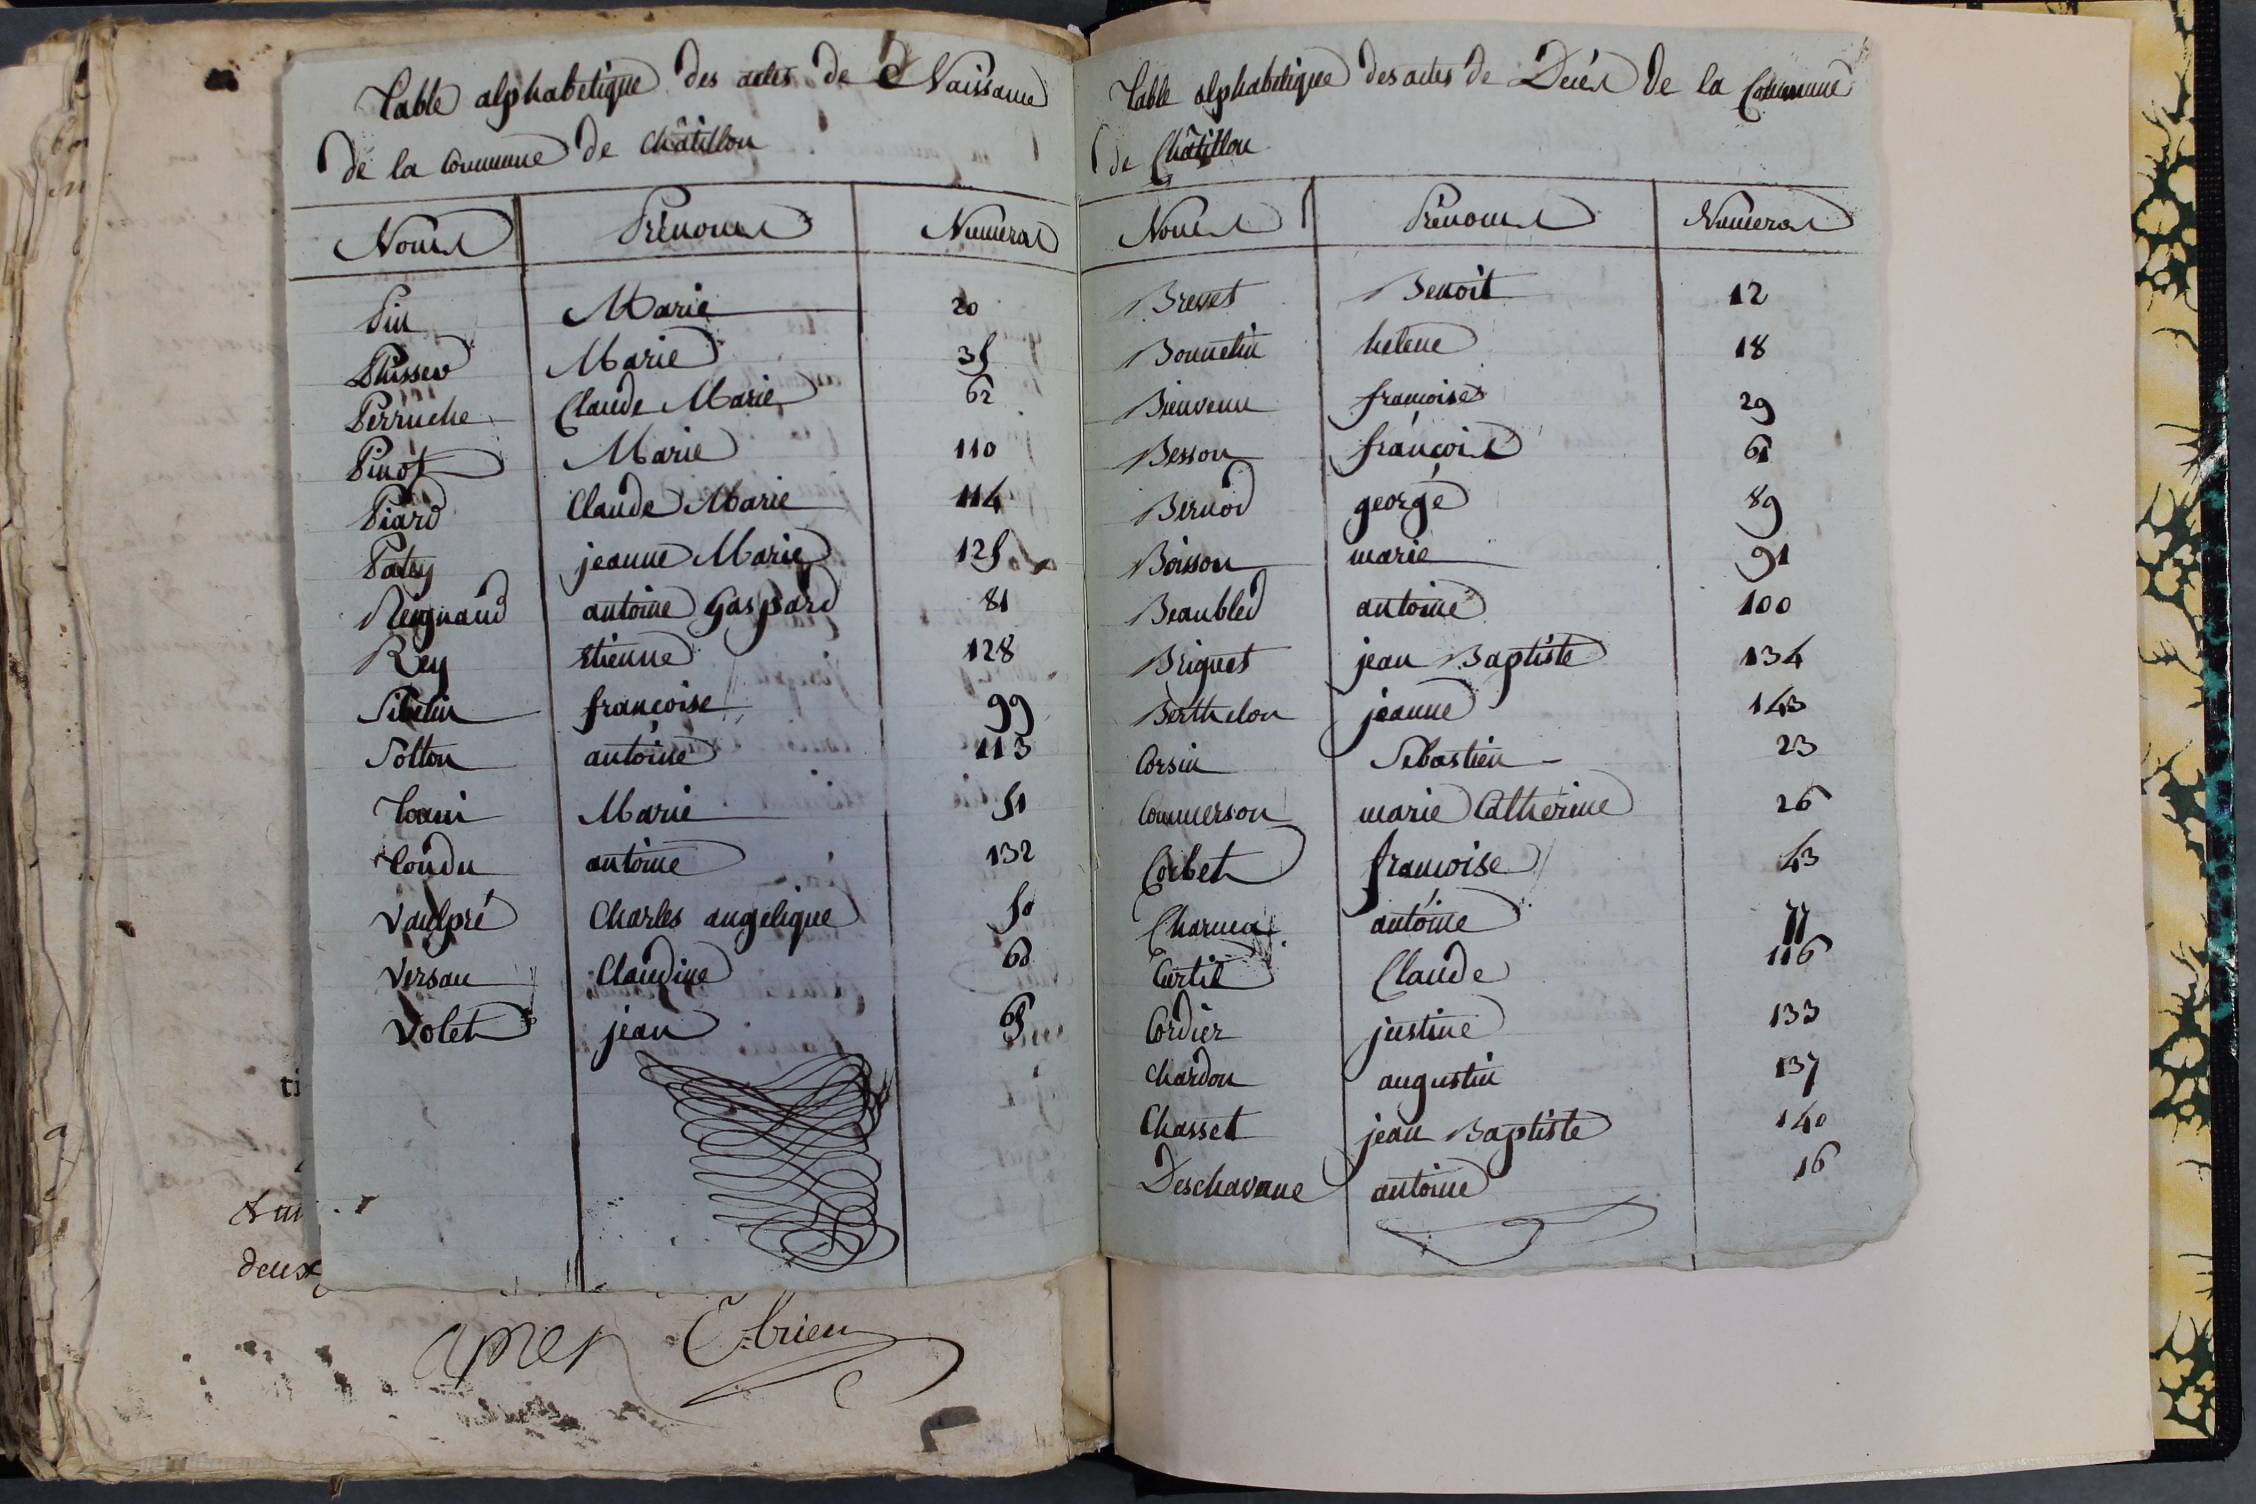 Table alphabetique des actes de Naissance
de la Commune de Châtillon
Noms Prénoms Numeros
Pin Marie 20
Marie 35
Perruche Claude Marie 62
Pinot Marie 110
Piard Claude Marie 114
Patey jeanne Marie 125
Reignaud antoine Gaspard 81
Rey Etienne 128
Sibelin francoise 99
Solton antoine 113
Marie 51
Tondu antoine 132
Vaulpré Charles angelique 50
Versau Claudine 60
Volet jean 65
deux
Ebrieu
Table alphabetique des actes de Decés de la Commune
de Châtillon
Noms Prénoms Numeros
Brevet Benoit 12
Bonnetin helene 18
Bienvenu francoise 29
Besson françois 61
Bernod george 89
Boisson marie 91
Beaubled antoine 100
Briguet jean Baptiste 134
Berthelon jeanne 143
Corsin Sebastien 23
Commerson marie Catherine 26
Corbet francoise 43
antoine 77
Curtil Claude 116
Cordier justine 133
Chardon augustin 137
Chasset jean Baptiste 140
Deschavane antoine 16